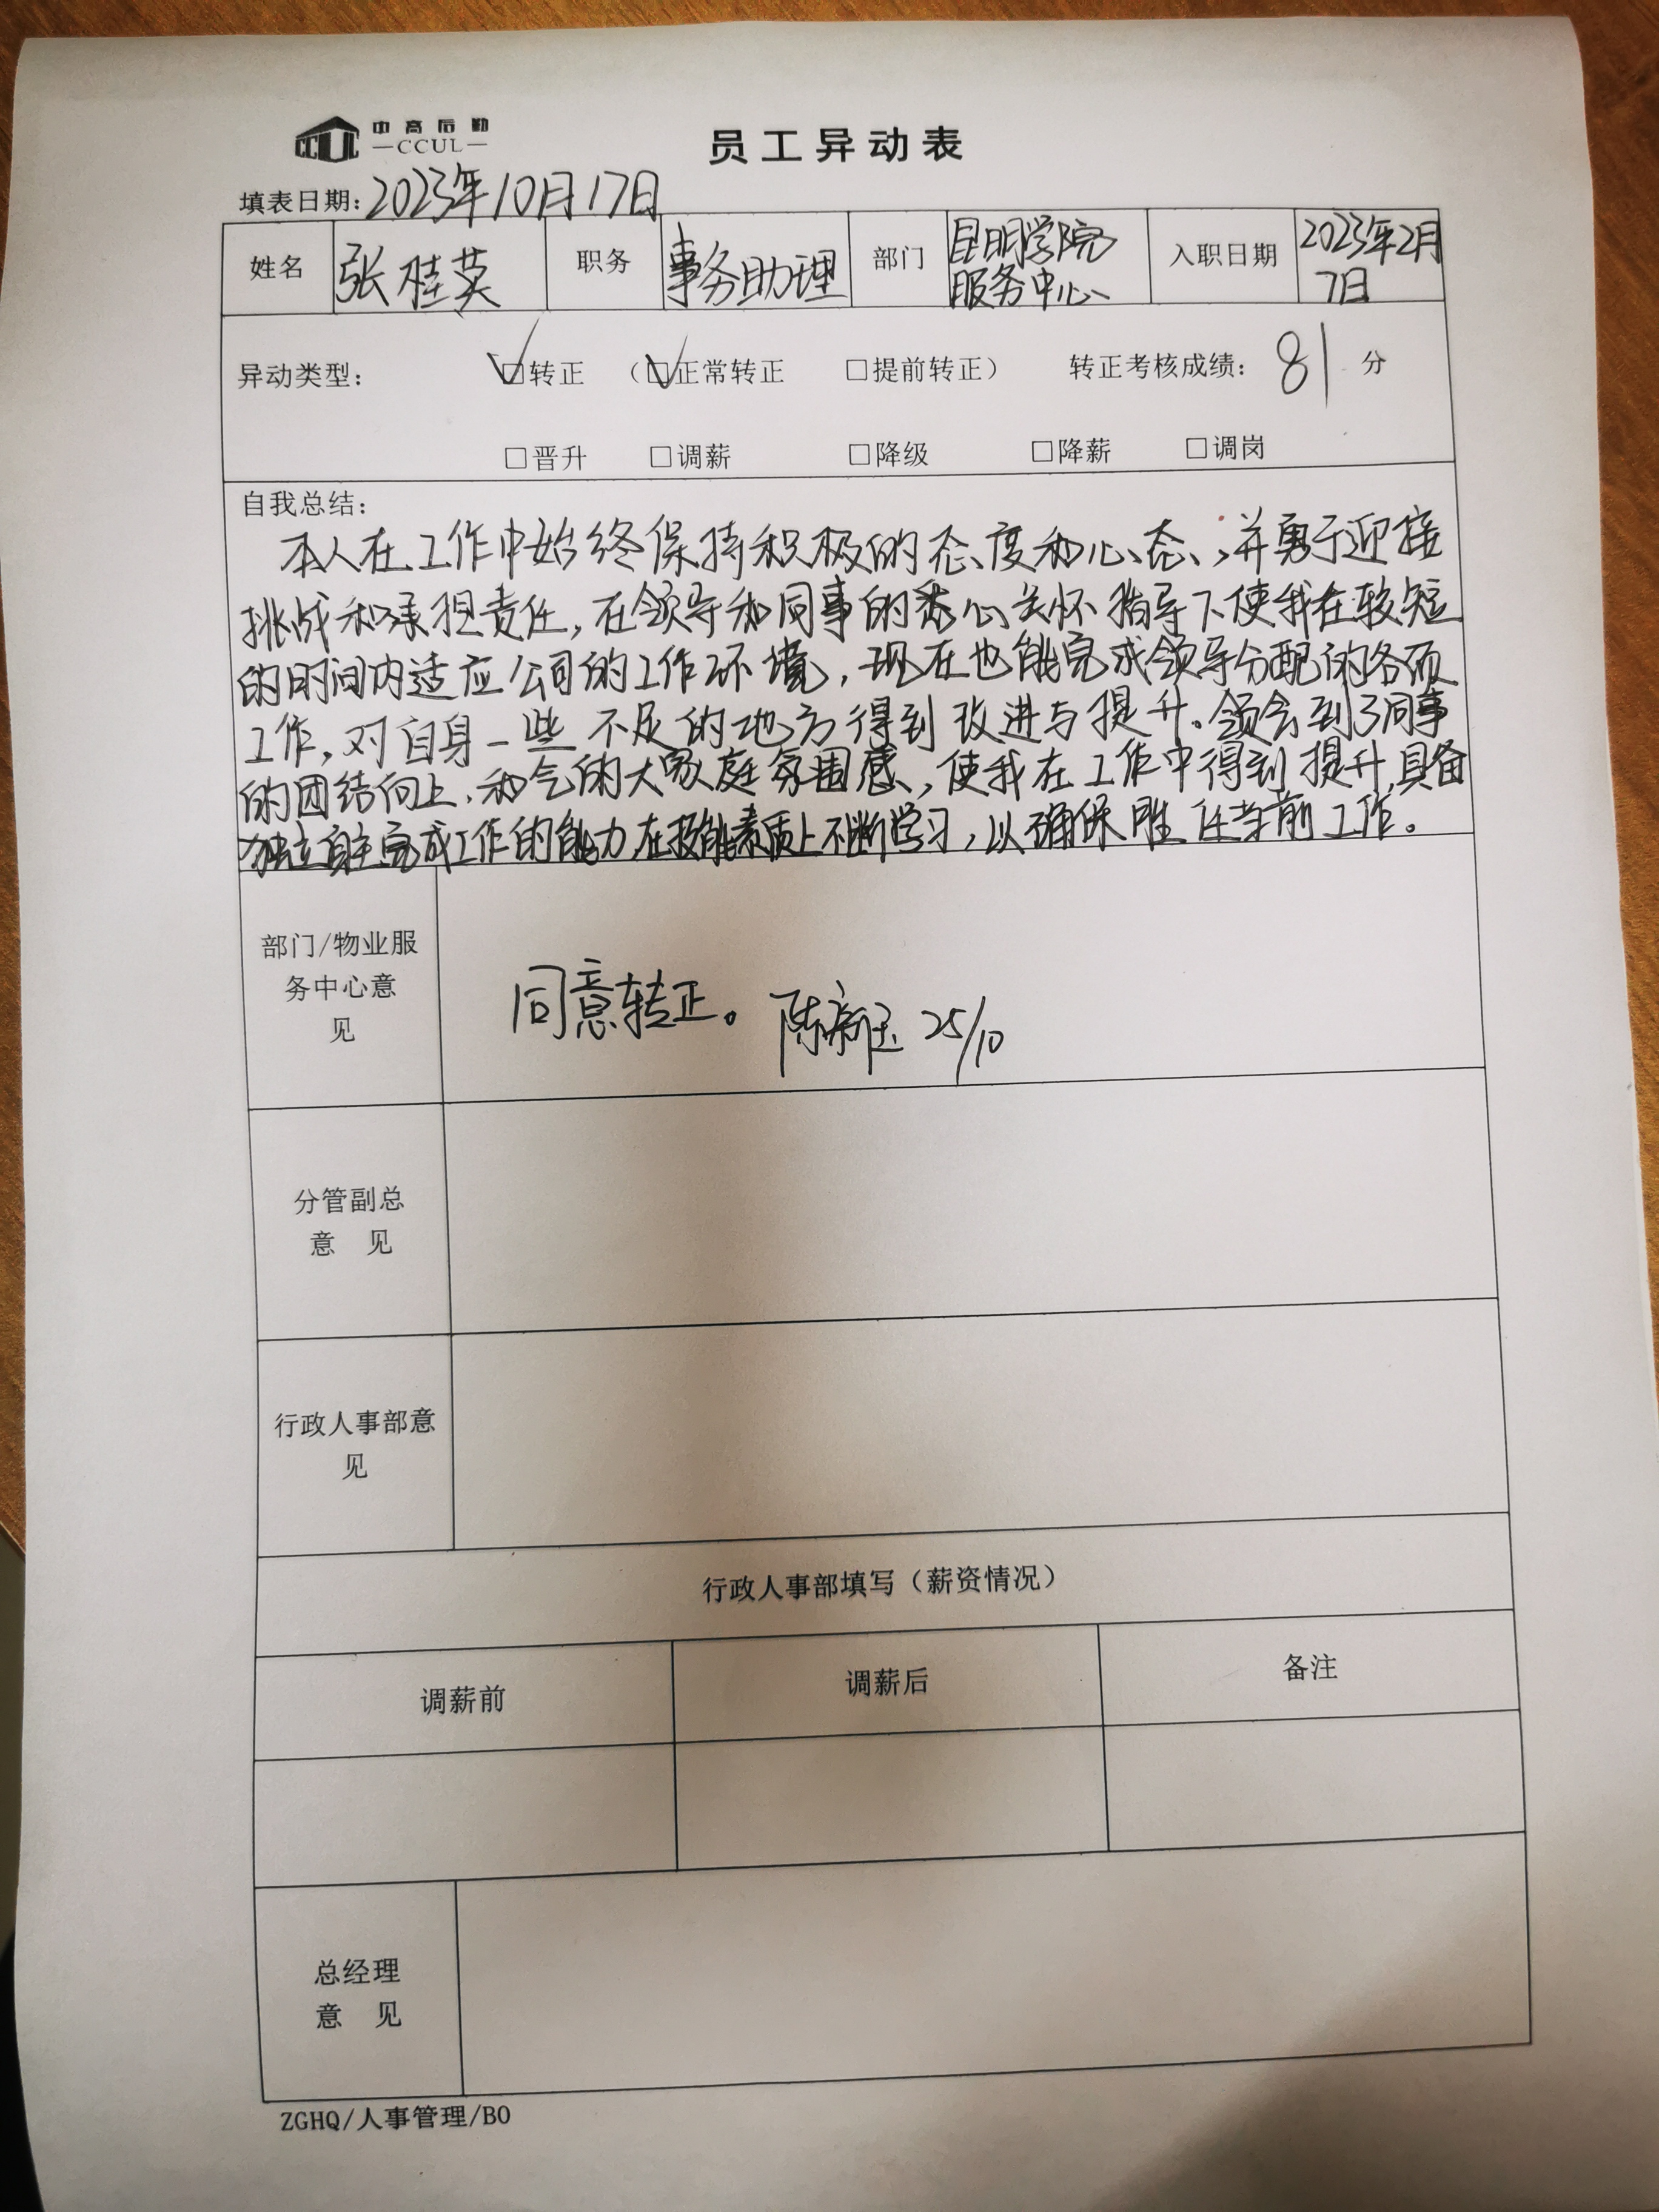 中高后勤
CCUL
—CCUL—
员工异动表
填表日期：2023年10月17日
姓名 张桂英 职务 事务助理 部门 昆明学院服务中心 入职日期 2023年2月7日
异动类型： ☑转正 （☑正常转正 □提前转正） 转正考核成绩：81 分
□晋升 □调薪 □降级 □降薪 □调岗
自我总结：
本人在工作中始终保持积极的态度和心态，并勇于迎接
挑战和承担责任，在领导和同事的悉心关怀指导下使我在较短
的时间内适应公司的工作环境，现在也能完成领导分配的各项
工作，对自身一些不足的地方得到改进与提升。领会到了同事
的团结向上、和气的大家庭氛围感，使我在工作中得到提升，具备
独立自主完成工作的能力，在技能素质上不断学习，以确保胜任当前工作。
部门/物业服
务中心意
见
同意转正。 陈 25/10
分管副总
意 见
行政人事部意
见
行政人事部填写（薪资情况）
调薪前 调薪后 备注
总经理
意 见
ZGHQ/人事管理/BO